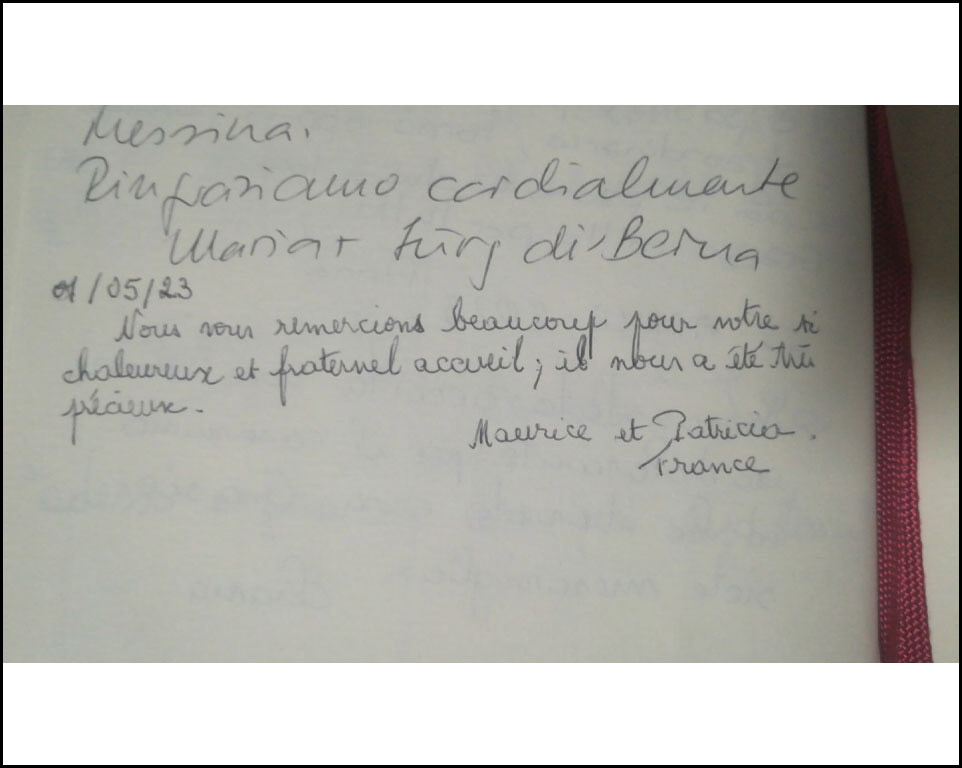 Messina.
Ringraziamo cordialmente
Maria + Jürg di Berna
01/05/23
Nous vous remercions beaucoup pour votre si
chaleureux et fraternel accueil ; il nous a été très
précieux.
Maurice et Patricia.
France